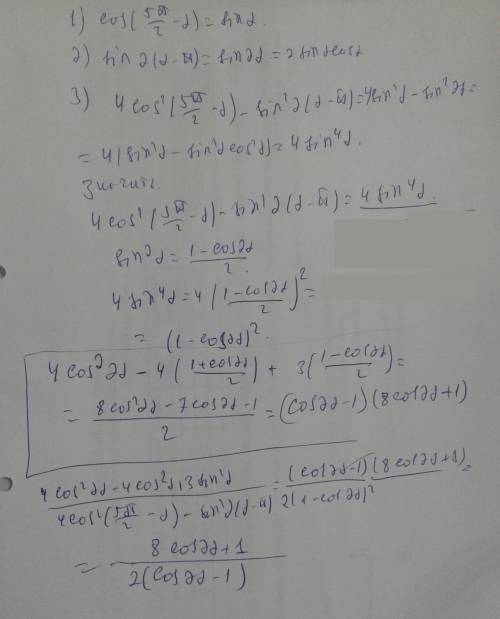 1) cos(5π/2 - α) = sin α.
2) sin 2(α - π) = sin 2α = 2 sin α cos α
3) 4 cos²(5π/2 - α) - sin² 2(α - π) = 4 sin² α - sin² 2α =
= 4(sin² α - sin² α cos² α) = 4 sin⁴ α.
Значит.
4 cos²(5π/2 - α) - sin² 2(α - π) = 4 sin⁴ α.
sin² α = (1 - cos 2α)/2.
4 sin⁴ α = 4 ((1 - cos 2α)/2)² =
= (1 - cos 2α)².
4 cos² 2α - 4((1 + cos 2α)/2) + 3((1 - cos 2α)/2) =
= (8 cos² 2α - 7 cos 2α - 1)/2 = (cos 2α - 1)(8 cos 2α + 1)
(4 cos² 2α - 4 cos² α + 3 sin² α)/(4 cos²(5π/2 - α) - sin² 2(α - π)) = (cos 2α - 1)(8 cos 2α + 1)/2(1 - cos 2α)² =
= (8 cos 2α + 1)/(2(cos 2α - 1))